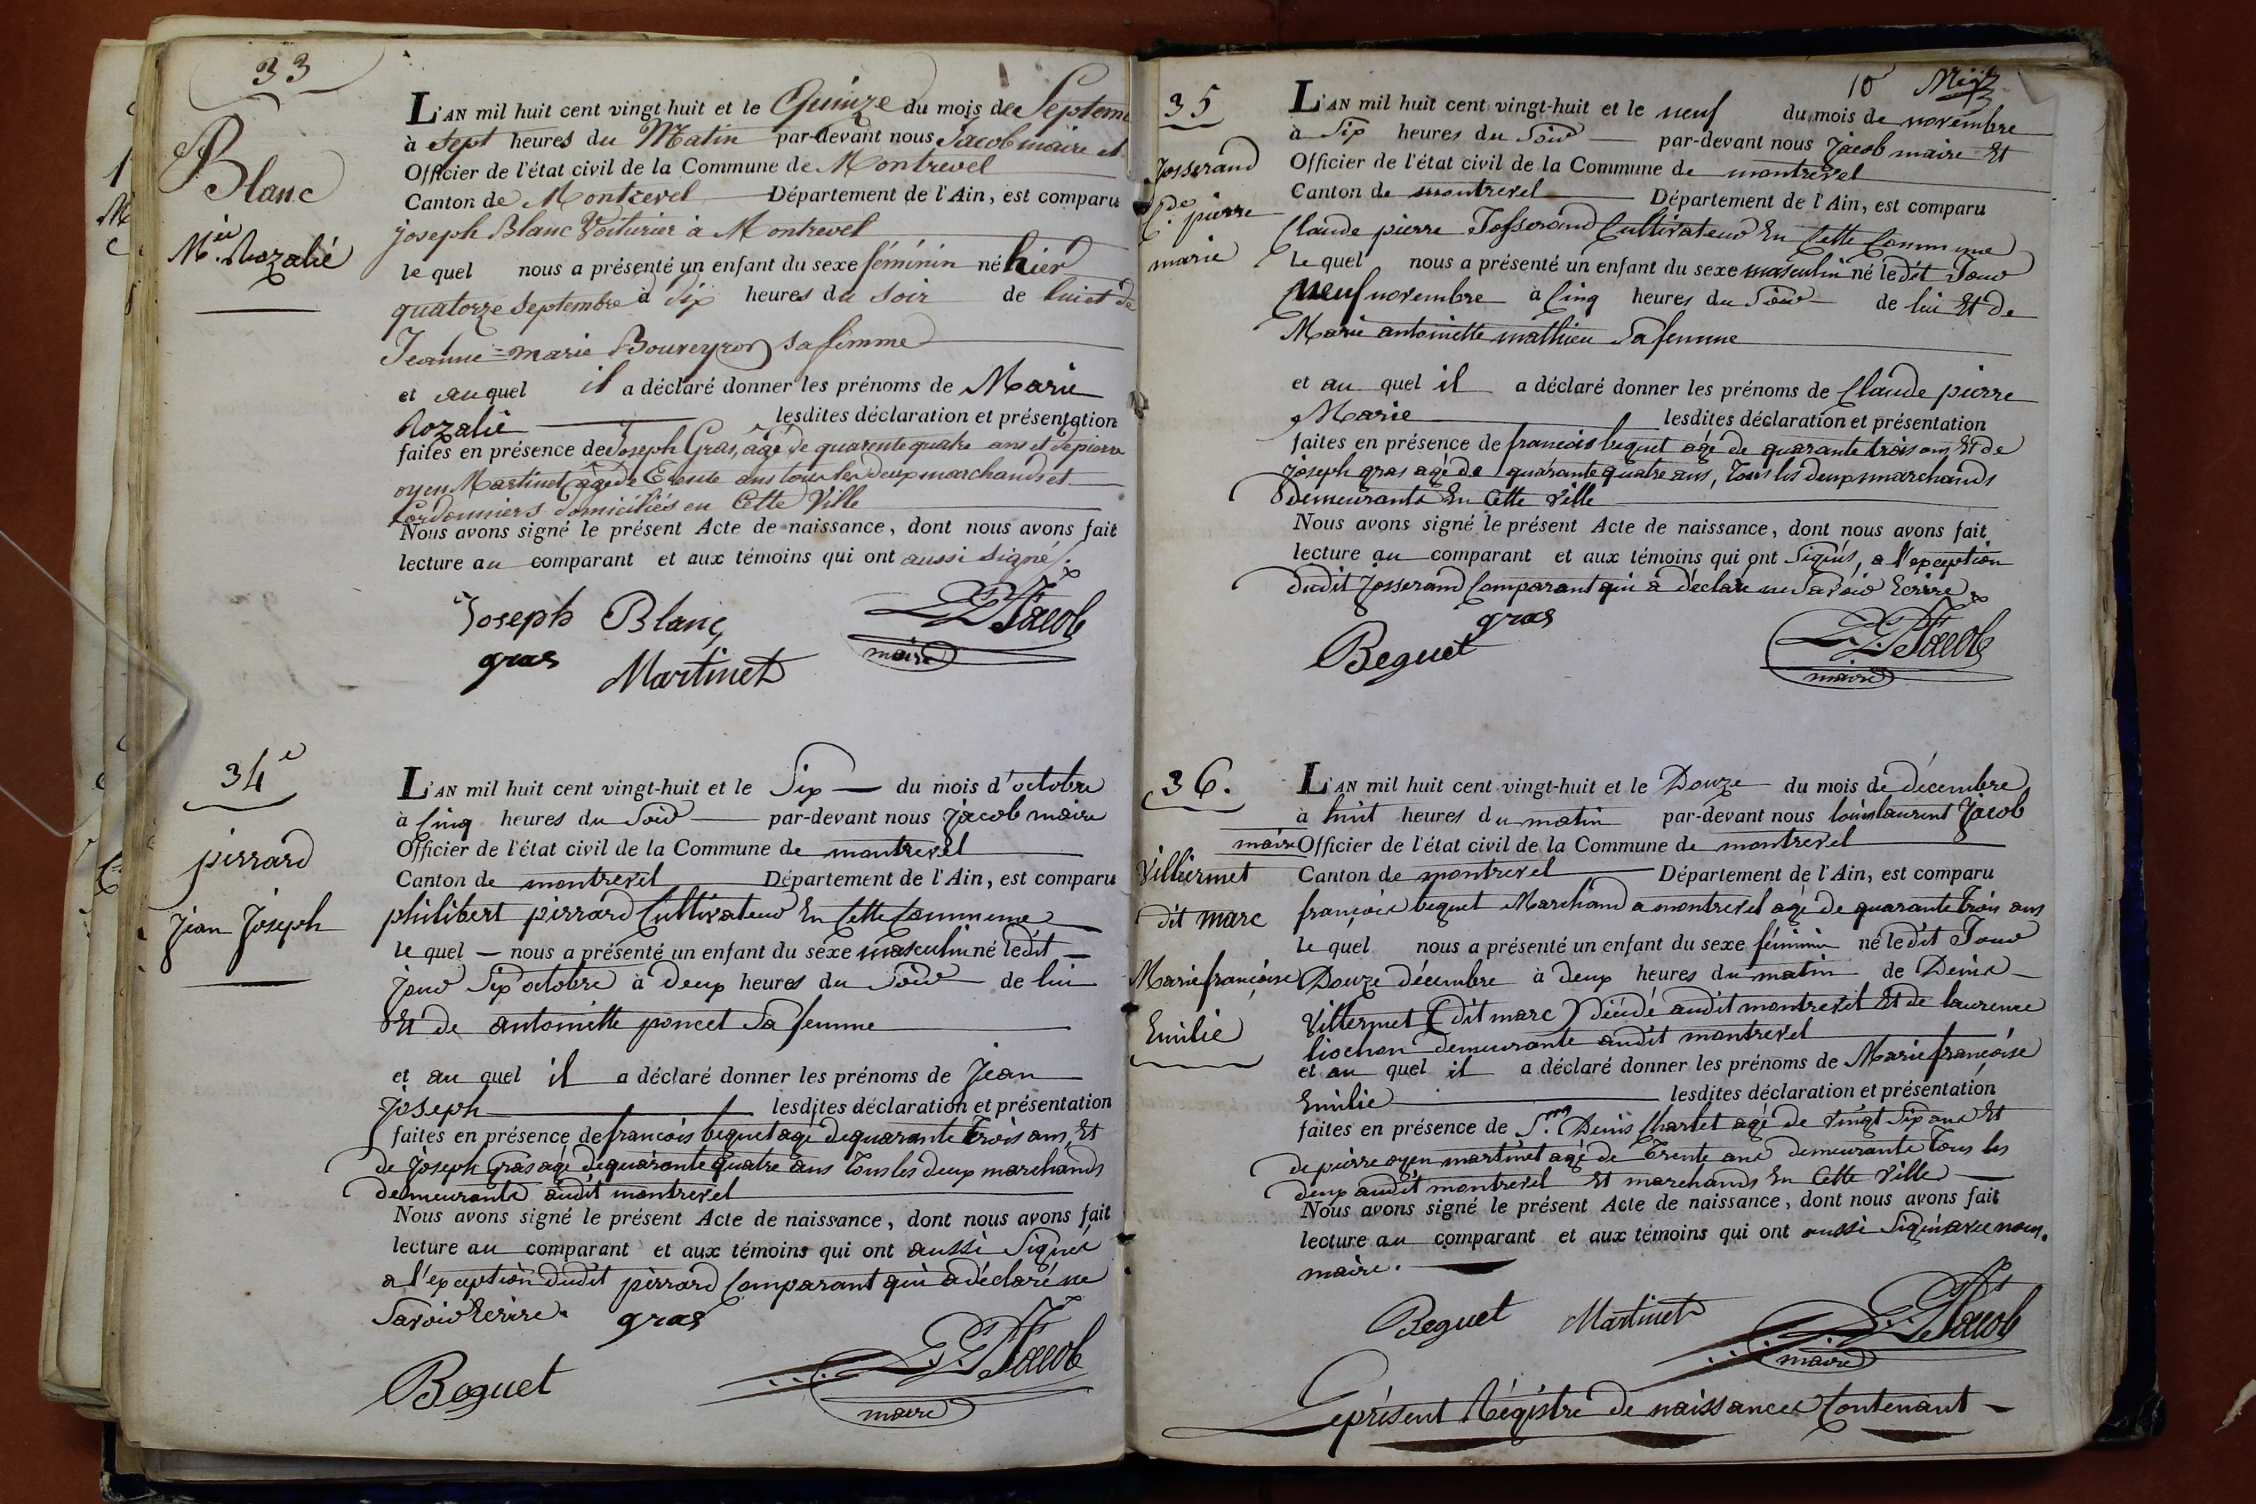 33
Blanc
M.ie Rozalie
L'AN mil huit cent vingt huit et le Quinze du mois de Septem
à sept heures du Matin par-devant nous Jacob maire et
Officier de l'état civil de la Commune de Montrevel
Canton de Montrevel Département de l'Ain, est comparu
joseph Blanc Voiturier à Montrevel
le quel nous a présenté un enfant du sexe féminin né hier
quatorze septembre à six heures du soir de lui et de
Jeanne=marie Bouveyron sa femme
et auquel il a déclaré donner les prénoms de Marie
Rozalie lesdites déclaration et présentation
faites en présence de Joseph Gras, âgé de quarente quatre ans et de pierre
oyen Martinet âgé de Trente ans tous les deux marchands et
Cordonniers domiciliés en Cette Ville
Nous avons signé le présent Acte de naissance, dont nous avons fait
lecture au comparant et aux témoins qui ont aussi signé/.
Joseph Blanc
L L Jacob
gras
Martinet
maire
34e
pirrard
Jean Joseph
L'AN mil huit cent vingt-huit et le Six du mois d'octobre
à Cinq heures du Soir par-devant nous Jacob maire
Officier de l'état civil de la Commune de montrevel
Canton de montrevel Département de l'Ain, est comparu
philibert pirrard Cultivateur En Cette Commune
le quel nous a présenté un enfant du sexe masculin né ledit
jour Six octobre à Deux heures du Soir de lui
Et de antoinette poncet Sa femme
et au quel il a déclaré donner les prénoms de Jean
Joseph lesdites déclaration et présentation
faites en présence de francois bequet agé de quarante trois ans, Et
de Joseph Gras agé de quarante quatre ans Tous les deux marchands
demeurants audit montrevel
Nous avons signé le présent Acte de naissance, dont nous avons fait
lecture au comparant et aux témoins qui ont aussi Signés
a l'exception dudit pirrard Comparant qui a déclaré ne
Savoir Ecrire.
gras
Beguet
L. L. Jacob
maire
10
35
Josserand
C.de pierre
marie
L'AN mil huit cent vingt-huit et le neuf du mois de novembre
à Six heures du Soir par-devant nous Jacob maire Et
Officier de l'état civil de la Commune de montrevel
Canton de montrevel Département de l'Ain, est comparu
Claude pierre Josserand Cultivateur En Cette Commune
le quel nous a présenté un enfant du sexe masculin né ledit Jour
Neuf novembre à Cinq heures du Soir de lui Et de
Marie antoinette mathieu Sa femme
et au quel il a déclaré donner les prénoms de Claude pierre
Marie lesdites déclaration et présentation
faites en présence de francois bequet agé de quarante trois ans, Et de
joseph gras agé de quarante quatre ans, Tous les deux marchands
demeurants En Cette Ville
Nous avons signé le présent Acte de naissance, dont nous avons fait
lecture au comparant et aux témoins qui ont Signés, a l'exception
dudit Josserand Comparant qui a déclaré ne Savoir Ecrire.
gras
Beguet
L. L. Jacob
maire
36.
Villiermet
dit marc
Marie françoise
Emilie
L'AN mil huit cent vingt-huit et le Douze du mois de décembre
à huit heures du matin par-devant nous louis laurent Jacob
maire Officier de l'état civil de la Commune de montrevel
Canton de montrevel Département de l'Ain, est comparu
françois bequet Marchand a montrevel agé de quarante trois ans
le quel nous a présenté un enfant du sexe féminin né ledit Jour
Douze décembre à deux heures du matin de Denis
Villermet (dit marc) décédé audit montrevel Et de laurence
liochon demeurante audit montrevel
et au quel il a déclaré donner les prénoms de Marie françoise
Emilie lesdites déclaration et présentation
faites en présence de Denis Charlet agé de Vingt Six ans Et
de pierre oyen martinet agé de Trente ans demeurants Tous les
deux audit montrevel Et marchands En Cette Ville
Nous avons signé le présent Acte de naissance, dont nous avons fait
lecture au comparant et aux témoins qui ont aussi Signé avec nous.
maire.
Beguet Martinet
L. L. Jacob
maire
Le présent Régistre de naissances Contenant